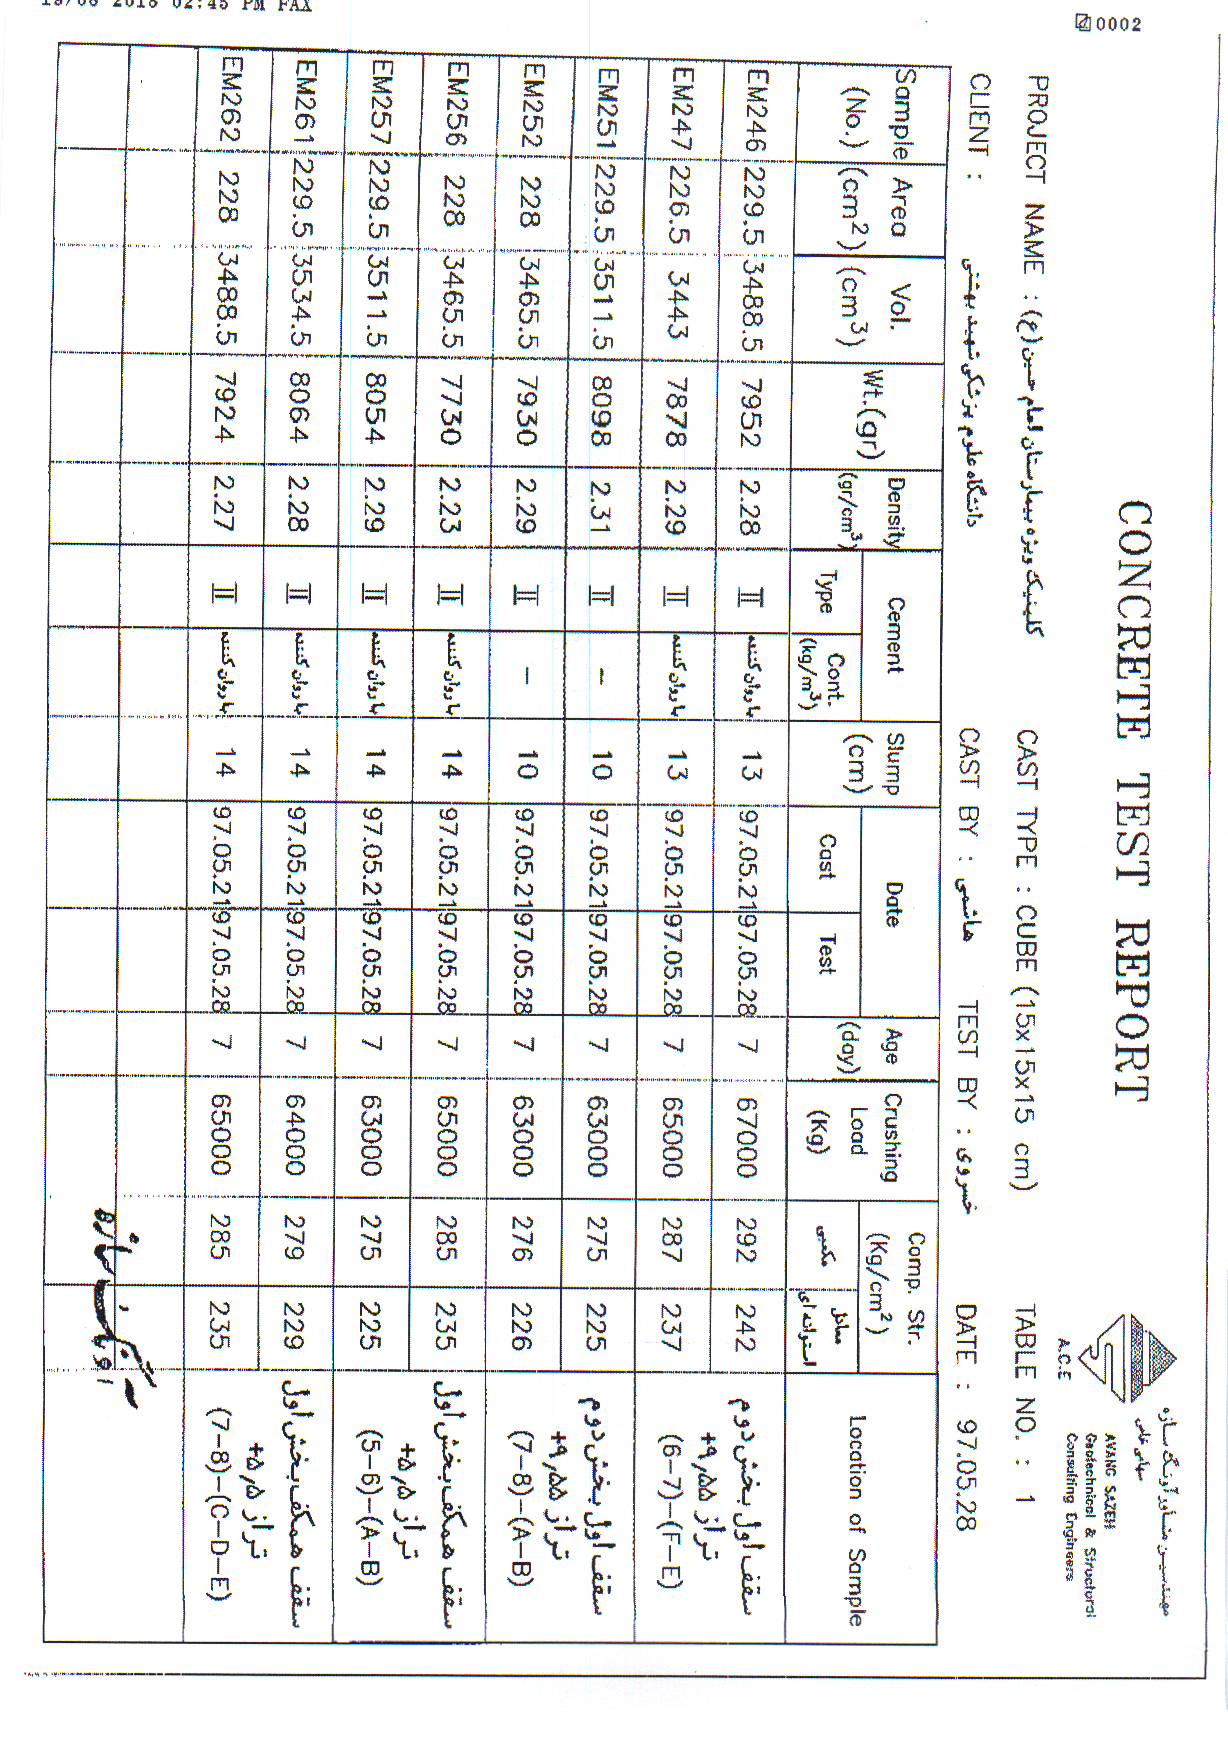 19/08 2018 02:45 PM FAX
0002
CONCRETE TEST REPORT
مهندسین مشاور آونگ سازه
سهامی خاص
AVANG SAZEH
Geotechnical & Structural
Consulting Engineers
A.C.E
PROJECT NAME : کلینیک ویژه بیمارستان امام حسین (ع) CAST TYPE : CUBE (15x15x15 cm) TABLE NO. : 1
CLIENT : دانشگاه علوم پزشکی شهید بهشتی CAST BY : هاشمی TEST BY : خسروی DATE : 97.05.28
Sample (No.) Area (cm2) Vol. (cm3) Wt.(gr) Density (gr/cm3) Cement Type Cont. (kg/m3) Slump (cm) Date Cast Test Age (day) Crushing Load (Kg) Comp. Str. (Kg/cm2) مکعبی معادل استوانه ای Location of Sample
EM246 229.5 3488.5 7952 2.28 II با روان کننده 13 97.05.21 97.05.28 7 67000 292 242 سقف اول بخش دوم
تراز ۹٫۵۵+
EM247 226.5 3443 7878 2.29 II با روان کننده 13 97.05.21 97.05.28 7 65000 287 237 (6-7)-(F-E)
EM251 229.5 3511.5 8098 2.31 II - 10 97.05.21 97.05.28 7 63000 275 225 سقف اول بخش دوم
تراز ۹٫۵۵+
EM252 228 3465.5 7930 2.29 II - 10 97.05.21 97.05.28 7 63000 276 226 (7-8)-(A-B)
EM256 228 3465.5 7730 2.23 II با روان کننده 14 97.05.21 97.05.28 7 65000 285 235 سقف همکف بخش اول
تراز ۵٫۵+
EM257 229.5 3511.5 8054 2.29 II با روان کننده 14 97.05.21 97.05.28 7 63000 275 225 (5-6)-(A-B)
EM261 229.5 3534.5 8064 2.28 II با روان کننده 14 97.05.21 97.05.28 7 64000 279 229 سقف همکف بخش اول
تراز ۵٫۵+
EM262 228 3488.5 7924 2.27 II با روان کننده 14 97.05.21 97.05.28 7 65000 285 235 (7-8)-(C-D-E)